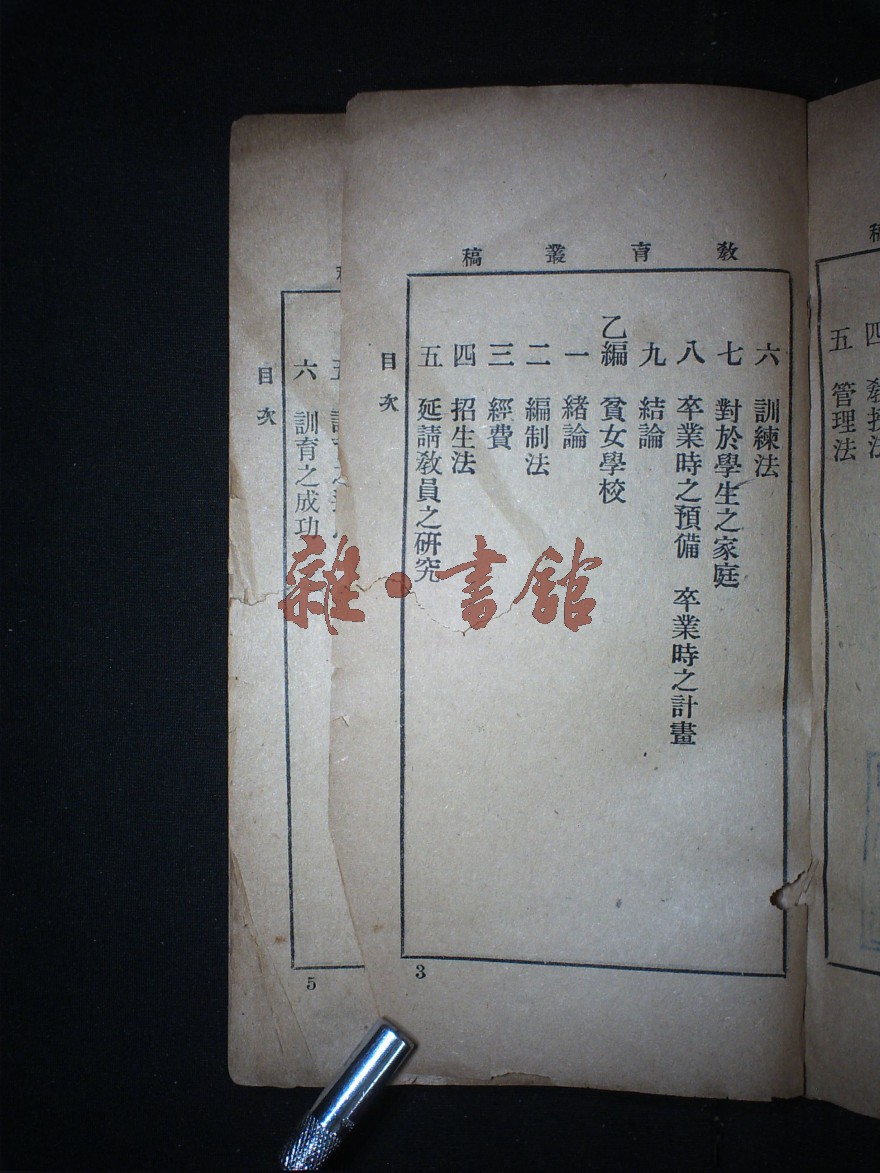 四　教授法
五　管理法
教育叢稿
六　訓練法
七　對於學生之家庭
八　卒業時之預備　卒業時之計畫
九　結論
乙編　貧女學校
一　緒論
二　編制法
三　經費
四　招生法
五　延請教員之研究
目次
3
六　訓育之成功
目次
5
雜·書館